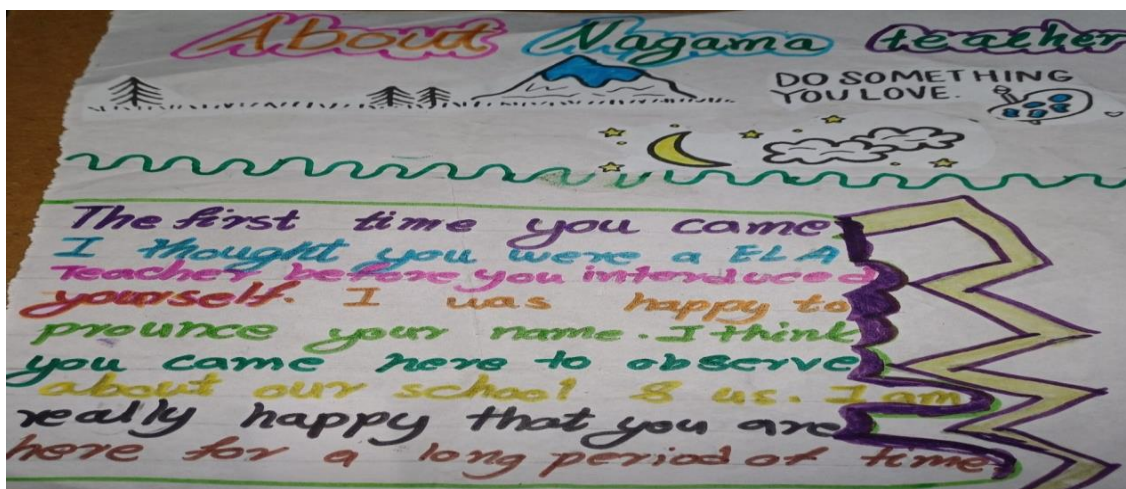 About Nagama teacher
DO SOMETHING
YOU LOVE.
The first time you came
I thought you were a ELA
Teacher before you interduced
yourself. I was happy to
prounce your name. I think
you came here to observe
about our school & us. I am
really happy that you are
here for a long period of time